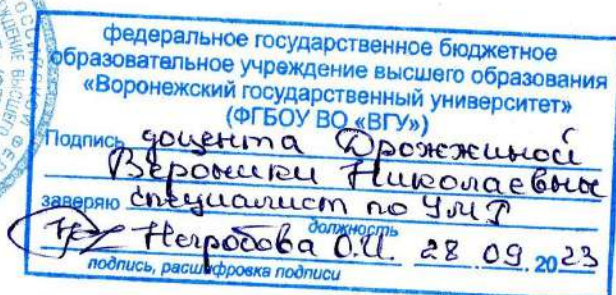 федеральное государственное бюджетное
образовательное учреждение высшего образования
«Воронежский государственный университет»
(ФГБОУ ВО «ВГУ»)
Подпись доцента Дрожжиной
Вероники Николаевны
заверяю специалист по УМР
должность
Негробова О.И. 28 09. 2023
подпись, расшифровка подписи